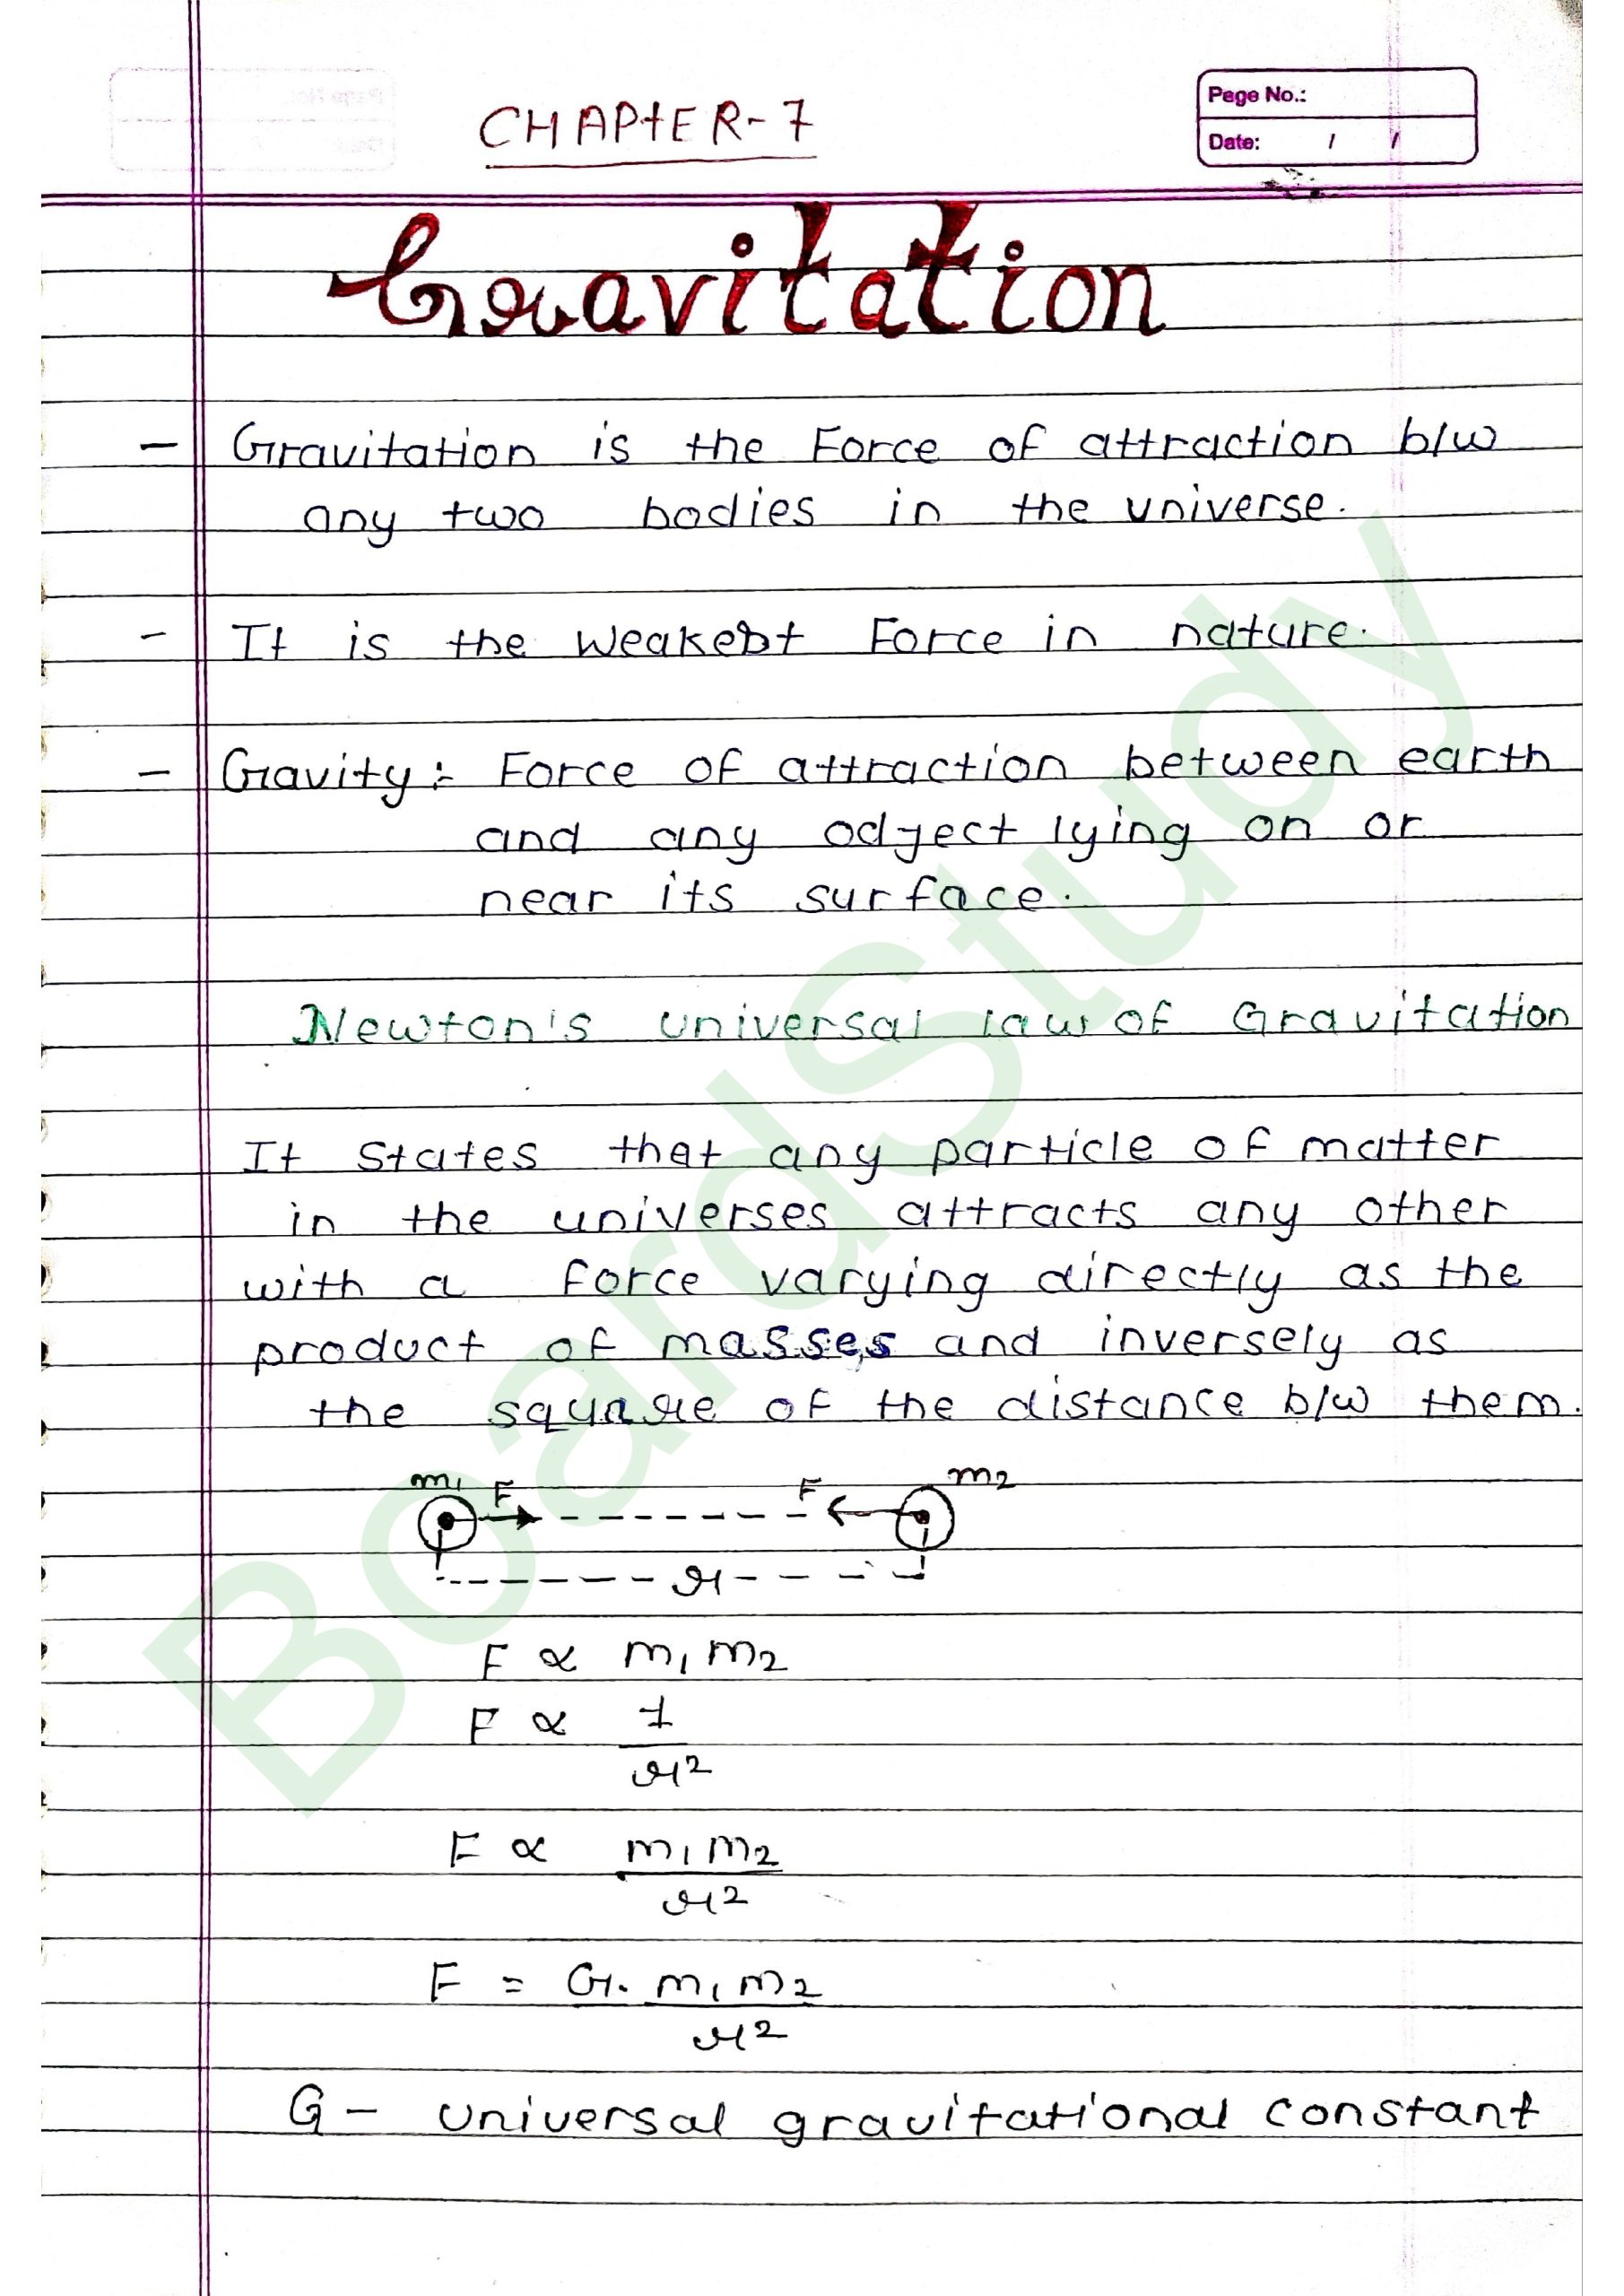 CHAPtER-7
Page No.:
Date: / /
Gravitation
- Gravitation is the Force of attraction b/w
any two bodies in the universe.
- It is the weakest Force in nature.
- Gravity:- Force of attraction between earth
and any odject lying on or
near its surface.
Newton's universal law of Gravitation
It states that any particle of matter
in the universes attracts any other
with a force varying directly as the
product of masses and inversely as
the square of the distance b/w them.
m1 F F m2
r
F ∝ m1 m2
F ∝ 1
r2
F ∝ m1 m2
r2
F = G. m1 m2
r2
G - universal gravitational constant
BoardStudy